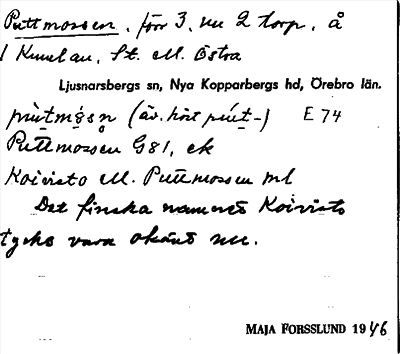 Puttmossen, förr 3, nu 2 torp, å
1 Kumlan, St. M. Östra
Ljusnarsbergs sn, Nya Kopparbergs hd, Örebro län.
pùtmɔ̀sɔn (äv. hört pút-) E 74
Puttmossen G81, ek
Koivisto M. Puttmossen ml
Det finska namnet Koivisto
tycks vara okänt nu.
MAJA FORSSLUND 1946